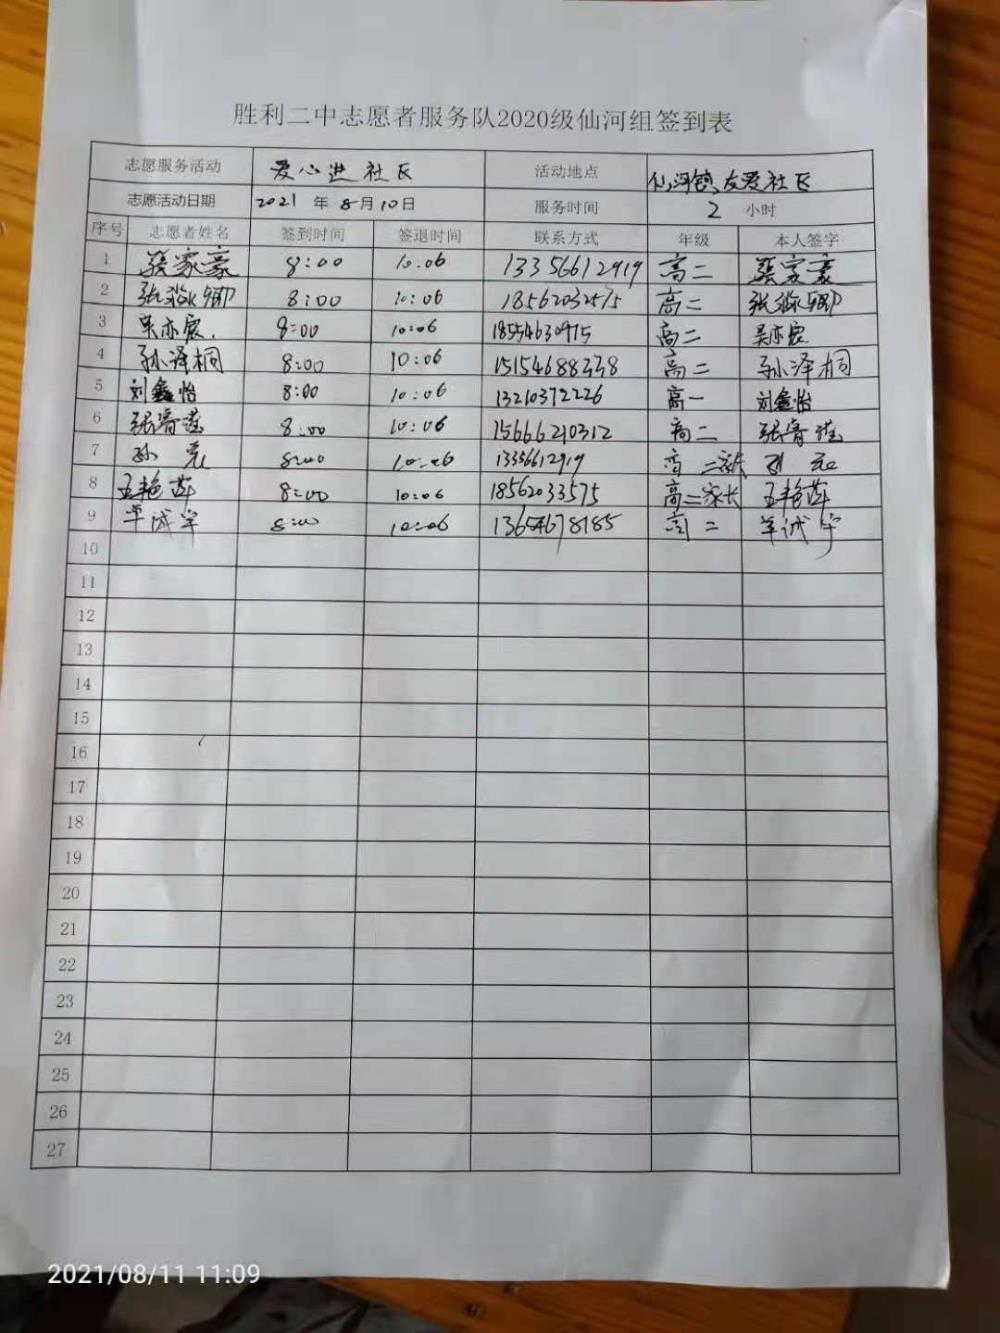 胜利二中志愿者服务队2020级仙河组签到表
志愿服务活动 爱心进社区 活动地点 仙河镇友爱社区
志愿活动日期 2021 年 8月10日 服务时间 2 小时
序号 志愿者姓名 签到时间 签退时间 联系方式 年级 本人签字
1 张家豪 8:00 10:06 13356612919 高二 张家豪
2 8:00 10:06 高二
3 吴亦宸 8:00 10:06 18554630975 高二 吴亦宸
4 孙泽桐 8:00 10:06 15154688338 高二 孙泽桐
5 刘鑫怡 8:00 10:06 13210372226 高一 刘鑫怡
6 8:00 10:06 15666210312 高二
7 8:00 10:06 13356612919 高二家长
8 王艳萍 8:00 10:06 18562033575 高二家长 王艳萍
9 8:00 10:06 13654678185 高二
10
11
12
13
14
15
16
17
18
19
20
21
22
23
24
25
26
27
2021/08/11 11:09